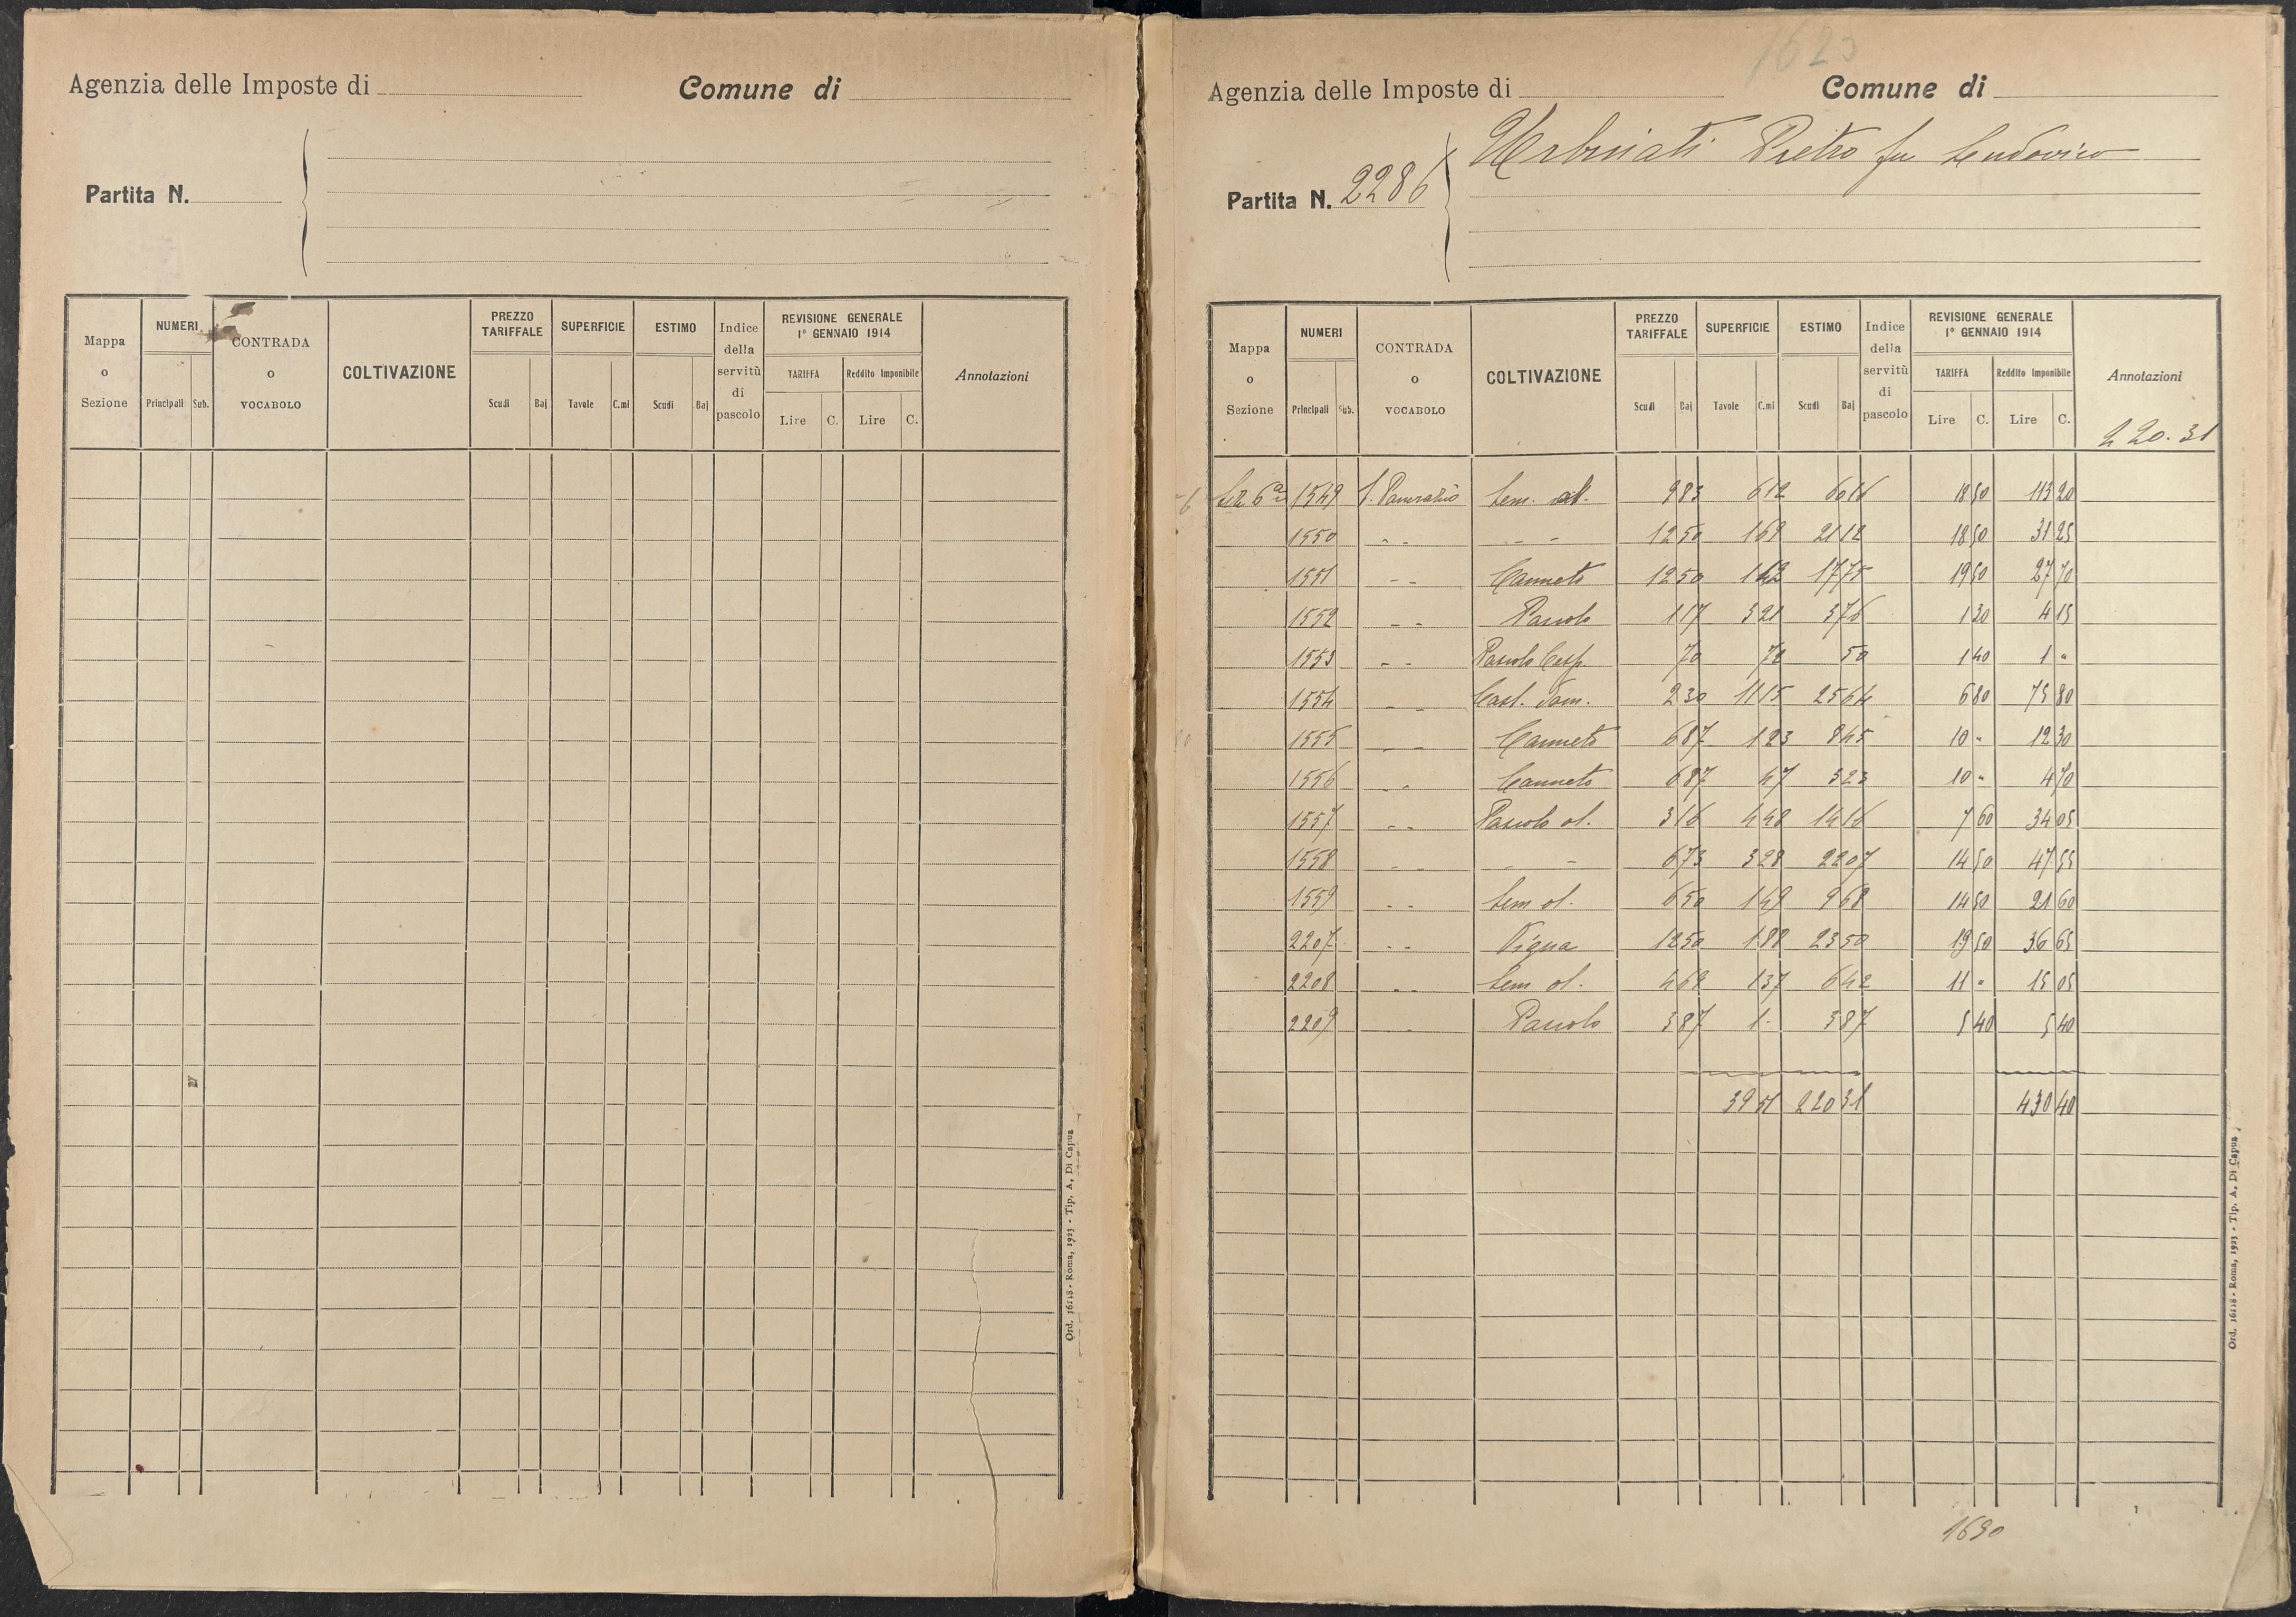 Agenzia delle Imposte di Comune di
Partita N.
Mappa o Sezione NUMERI Principali Sub. CONTRADA o VOCABOLO COLTIVAZIONE PREZZO TARIFFALE Scudi Baj SUPERFICIE Tavole C.mi ESTIMO Scudi Baj Indice della servitù di pascolo REVISIONE GENERALE 1° GENNAIO 1914 TARIFFA Lire C. Reddito Imponibile Lire C. Annotazioni
Ord. 16118 - Roma, 1923 - Tip. A. Di Capua
1623
Agenzia delle Imposte di Comune di
Partita N. 2286 Urbinati Pietro fu Ludovico
Mappa o Sezione NUMERI Principali Sub. CONTRADA o VOCABOLO COLTIVAZIONE PREZZO TARIFFALE Scudi Baj SUPERFICIE Tavole C.mi ESTIMO Scudi Baj Indice della servitù di pascolo REVISIONE GENERALE 1° GENNAIO 1914 TARIFFA Lire C. Reddito Imponibile Lire C. Annotazioni
220.31
Sez 6a 1549 S. Pancrazio Sem. ol. 9 83 6 12 60 16 18 50 113 20
1550 - - - - 12 50 1 69 21 12 18 50 31 25
1551 - - Canneto 12 50 1 42 17 75 19 50 27 70
1552 - - Pascolo 1 17 3 21 3 76 1 30 4 15
1553 - - Pascolo Cesp. 70 72 50 1 40 1 "
1554 - - Cast. dom. 2 30 11 15 25 64 6 80 75 80
1555 - - Canneto 6 87 1 23 8 45 10 " 12 30
1556 - - Canneto 6 87 47 3 23 10 " 4 70
1557 - - Pascolo ol. 3 16 4 48 14 16 7 60 34 05
1558 - - - - 6 73 3 28 22 07 14 50 47 55
1559 - - Sem ol. 6 50 1 49 9 68 14 50 21 60
2207 - - Vigna 12 50 1 88 23 50 19 50 36 65
2208 - - Sem ol. 4 69 1 37 6 42 11 " 15 05
2209 - - Pascolo 3 87 1 - 3 87 5 40 5 40
39 51 220 31 430 40
Ord. 16118 - Roma, 1923 - Tip. A. Di Capua
1630